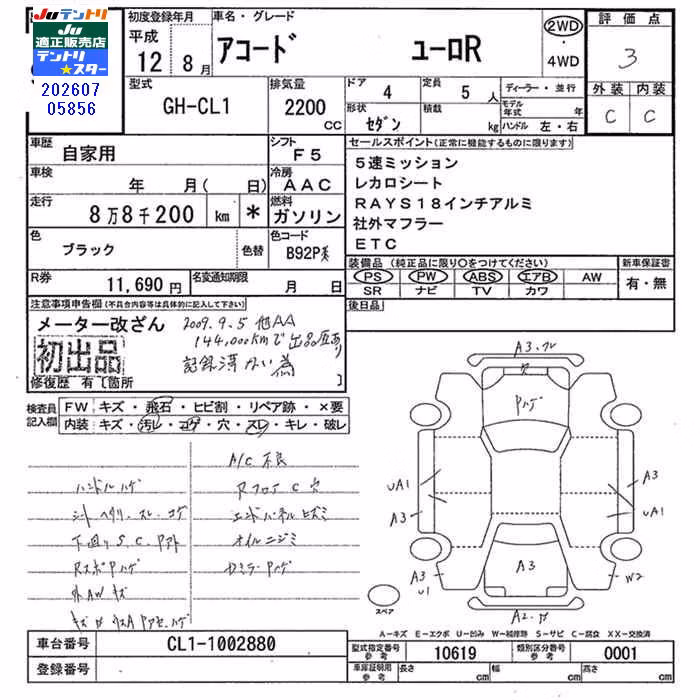 Juテントリ
Ju テントリ
適正販売店
テントリ
★スター
202607
05856
初度登録年月
平成
12年
8月
車名・グレード
アコード ユーロR
2WD
・
4WD
評価点
3
外装 内装
C C
型式
GH-CL1
排気量
2200
CC
ドア
4
定員
5人
ディーラー・並行
形状
セダン
積載
kg
モデル年式 年
ハンドル 左・右
車歴
自家用
シフト
F5
車検
年 月( 日)
冷房
AAC
走行
8万8千200 km *
燃料
ガソリン
色
ブラック
色替
色コード
B92P
R券
11,690円
名変通知期限
月 日
セールスポイント(正常に機能するものに限ります)
5速ミッション
レカロシート
RAYS18インチアルミ
社外マフラー
ETC
装備品 (純正品に限り○をつけてください)
PS PW ABS エアB AW
SR ナビ TV カワ
新車保証書
有・無
後日品
注意事項申告欄(不具合内容等は具体的に記入して下さい)
メーター改ざん
2009.9.5 他AA
144,000kmで出品歴あり
記録簿ない為
初出品
修復歴 有〔箇所 〕
検査員
記入欄
FW キズ・飛石・ヒビ割・リペア跡・×要
内装 キズ・汚レ・コゲ・穴・スレ・キレ・破レ
A/C不良
ハンドルハゲ
Rフロア C 穴
シートヘタリ、スレ、コゲ
エンドパネルヒズミ
下廻りS.C.
オイルニジミ
RスポPハゲ
外AWキズ
A3
Pハゲ
UA1
A3
A3
UA1
A3
A3
U1
W2
スペア
A2
A-キズ E-エクボ U-凹み W-補修跡 S-サビ C-腐食 XX-交換済
車台番号
CL1-1002880
登録番号
型式指定番号
参考
10619
類別区分番号
参考
0001
車庫証明用
参考
長さ cm
幅 cm
高さ cm